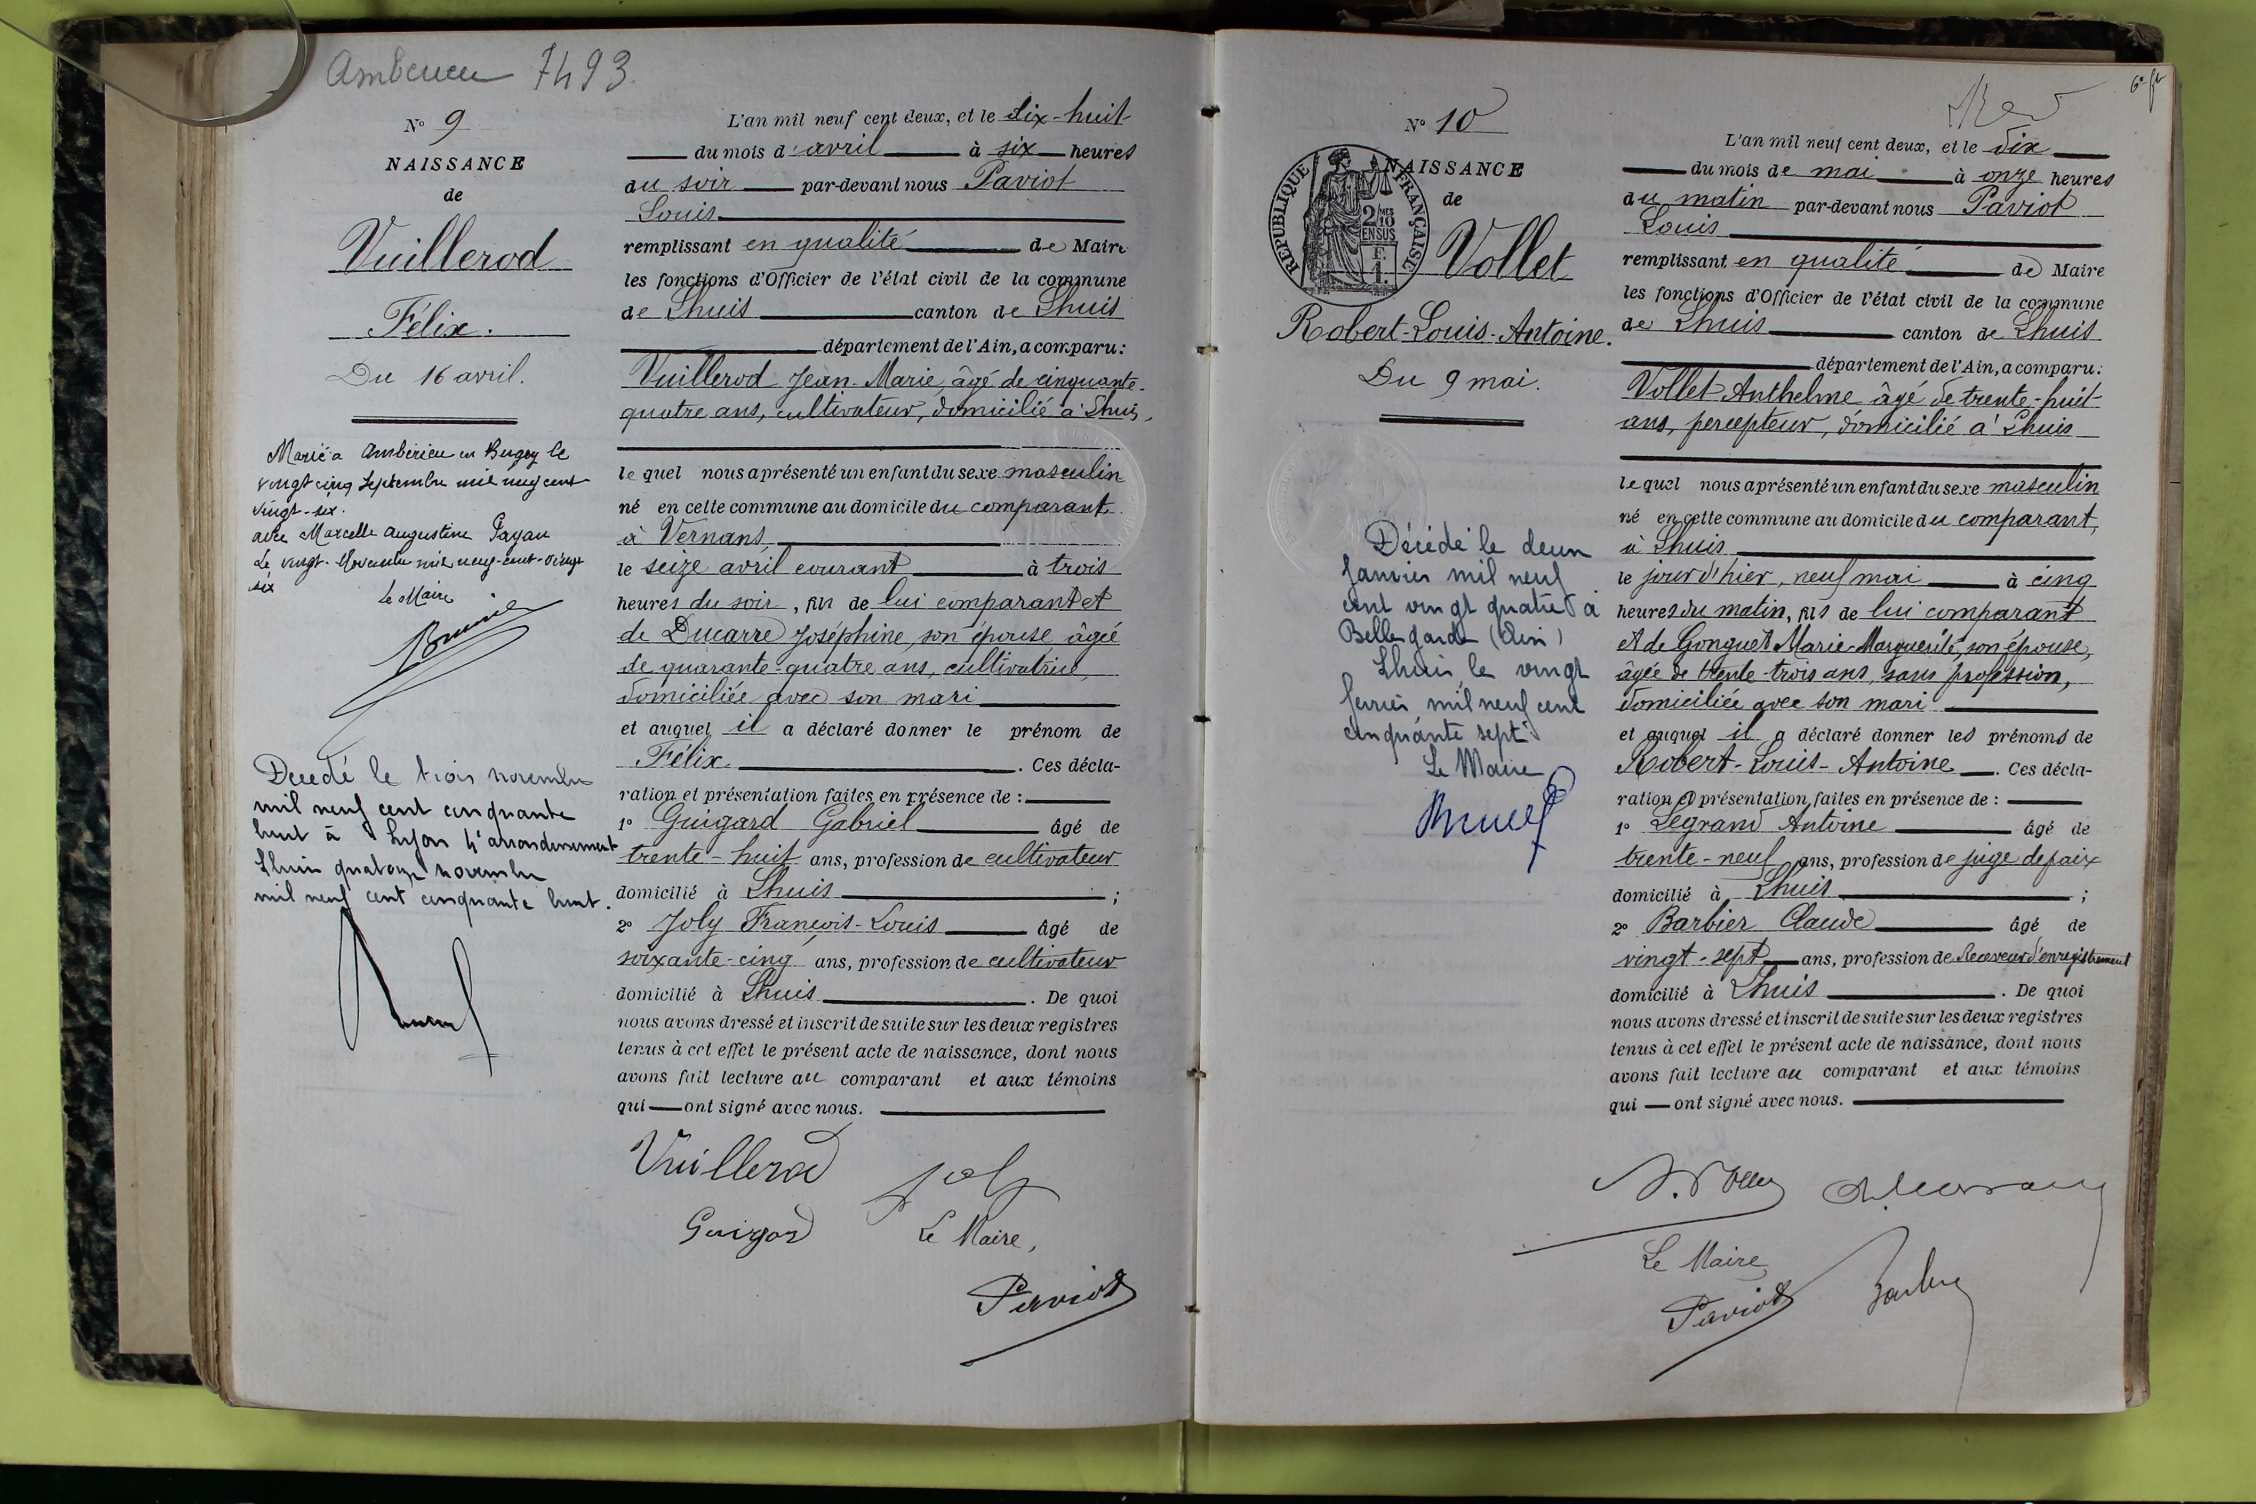 Ambérieu 7493
N° 9
NAISSANCE
de
Vuillerod
Félix.
Du 16 avril.
Marié à Ambérieu en Bugey le
vingt cinq Septembre mil neuf cent
vingt-six.
avec Marcelle Augustine Payan
Le vingt Novembre mil neuf-cent-vingt
six
Le Maire
Décédé le trois novembre
mil neuf cent cinquante
huit à Lyon 4e arrondissement
Lhuis quatorze novembre
mil neuf cent cinquante huit.
L'an mil neuf cent deux, et le dix-huit
du mois d'avril à six heures
du soir par-devant nous Paviot
Louis
remplissant en qualité de Maire
les fonctions d'Officier de l'état civil de la commune
de Lhuis canton de Lhuis
département de l'Ain, a comparu:
Vuillerod Jean-Marie, âgé de cinquante-
quatre ans, cultivateur, domicilié à Lhuis,
lequel nous a présenté un enfant du sexe masculin
né en cette commune au domicile du comparant
à Vernans,
le seize avril courant à trois
heures du soir, fils de lui comparant et
de Ducarre Joséphine, son épouse âgée
de quarante-quatre ans, cultivatrice,
domiciliée avec son mari
et auquel il a déclaré donner le prénom de
Félix. Ces décla-
ration et présentation faites en présence de :
1° Guigard Gabriel âgé de
trente-huit ans, profession de cultivateur
domicilié à Lhuis ;
2° Joly François-Louis âgé de
soixante-cinq ans, profession de cultivateur
domicilié à Lhuis . De quoi
nous avons dressé et inscrit de suite sur les deux registres
tenus à cet effet le présent acte de naissance, dont nous
avons fait lecture au comparant et aux témoins
qui ont signé avec nous.
Vuillerod Joly
Guigard Le Maire,
Paviot
N° 10
NAISSANCE
de
RÉPUBLIQUE FRANÇAISE
2/10
EN SUS
Vollet
Robert-Louis-Antoine.
Du 9 mai.
Décédé le deux
Janvier mil neuf
cent vingt quatre à
Bellegarde (Ain)
Lhuis, le vingt
février mil neuf cent
cinquante sept
Le Maire
L'an mil neuf cent deux, et le dix
du mois de mai à onze heures
du matin par-devant nous Paviot
Louis
remplissant en qualité de Maire
les fonctions d'Officier de l'état civil de la commune
de Lhuis canton de Lhuis
département de l'Ain, a comparu:
Vollet Anthelme âgé de trente-huit
ans, percepteur, domicilié à Lhuis
lequel nous a présenté un enfant du sexe masculin
né en cette commune au domicile du comparant,
à Lhuis
le jour d'hier, neuf mai à cinq
heures du matin, fils de lui comparant
et de Gonguet Marie-Marguerite, son épouse,
âgée de trente-trois ans, sans profession,
domiciliée avec son mari
et auquel il a déclaré donner les prénoms de
Robert-Louis-Antoine. Ces décla-
ration et présentation faites en présence de :
1° Legrand Antoine âgé de
trente-neuf ans, profession de juge de paix
domicilié à Lhuis ;
2° Barbier Claude âgé de
vingt-sept ans, profession de Receveur d'enregistrement
domicilié à Lhuis . De quoi
nous avons dressé et inscrit de suite sur les deux registres
tenus à cet effet le présent acte de naissance, dont nous
avons fait lecture au comparant et aux témoins
qui ont signé avec nous.
A. Vollet
Le Maire
Paviot Barbier